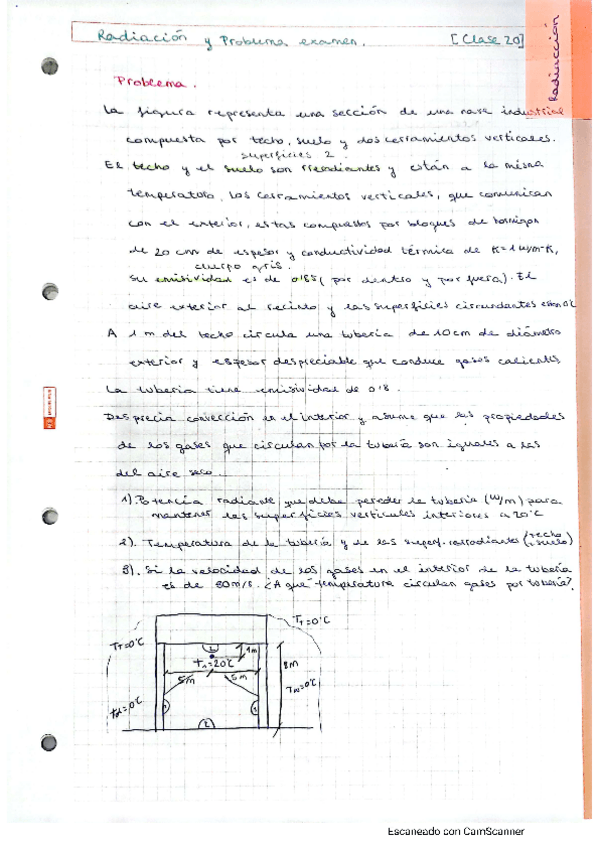 Radiación y Problema examen. [Clase 20]
Radiacción
Problema.
La figura representa una sección de una nave industrial
compuesta por techo, suelo y dos cerramientos verticales.
superficies 2.
El techo y el suelo son rreradiantes y están a la misma
temperatura, los cerramientos verticales, que comunican
con el exterior, estas compuestos por bloques de hormigon
de 20 cm de espesor y conductividad térmica de K=1 W/m·K,
cuerpo gris.
su emisividad es de 0'85 (por dentro y por fuera). El
aire exterior al recinto y las superficies circundantes están 0ºC
A 1 m del techo circula una tubería de 10cm de diámetro
exterior y espesor despreciable que conduce gases calientes
La tuberia tiene emisividad de 0'8.
Desprecia convección en el interior y asume que las propiedades
de los gases que circulan por la tubería son iguales a las
del aire seco.
1) Potencia radiante que debe perder la tubería (W/m) para
mantener las superficies verticales interiores a 20ºC
2). Temperatura de la tubería y de las superf. rerradiantes (techo
y suelo)
3). Si la velocidad de los gases en el interior de la tubería
es de 30m/s. ¿A que temperatura circulan gases por tubería?
TT=0ºC
TT=0ºC
2
1m
T1=20ºC
5m
5m
8m
T∞=0ºC
T∞=0ºC
1
1
2
Escaneado con CamScanner